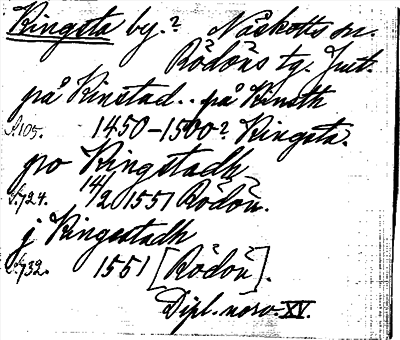 Kingsta by.? Näskotts sn.
Rödöns tg. Jmtl.
på Kinstad.. på Kinsth
s. 105. 1450–1500? Kingsta.
po Kingstadh
s. 724. 14/2 1551 Rödön.
j Kingestadh
s. 732. 1551 [Rödön].
Dipl. norv. XV.